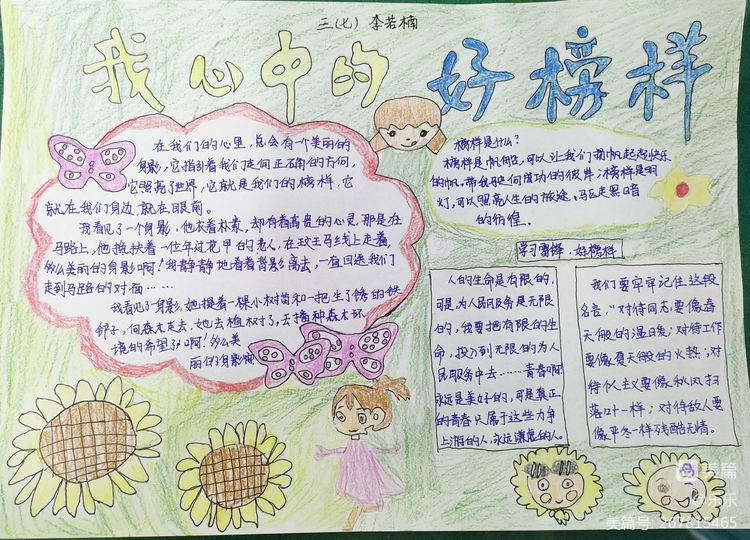 三(七) 李若楠
我心中的 好榜样
在我们的心里,总会有个美丽的
身影,它指引着我们走向正确的方向,
它照亮了世界,它就是我们的榜样,它
就在我们身边,就在眼前。
我看见了一个身影,他衣着朴素,却有着高贵的心灵,那是在
马路上,他搀扶着一位年过花甲的老人,在斑马线上走着,
多么美丽的身影啊!我静静地看着背影离去,一直回送我们
走到马路的对面……
我看见了身影,她提着一棵小树苗和一把生了锈的铁
锹子,向森林走去,她去植树了,去播种森林环
境的希望了,啊!多么美
丽的身影啊
榜样是什么?
榜样是帆船,可以让我们扬帆起起快乐
的帆,带我驶向成功的彼岸;榜样是明
灯,可以照亮人生的旅途,马区走黑暗
的彷徨。
学习雷锋·好榜样
人的生命是有限的,
可是,为人民服务是无限
的,我要把有限的生
命,投入到无限的为人
民服务中去……青春啊,
永远是美好的,可是真正
的青春只属于这些力争
上游的人,永远谦虚的人。
我们要牢牢记住这段
名言,“对待同志,要像春
天般的温暖;对待工作
要像夏天般的火热;对
待个人主义要像秋风扫
落叶一样;对待敌人要
像严冬一样残酷无情。
美篇
@乐乐
美篇号:267815465